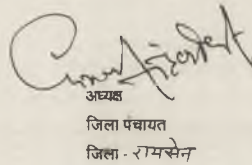 अध्यक्ष
जिला पंचायत
जिला - रायसेन